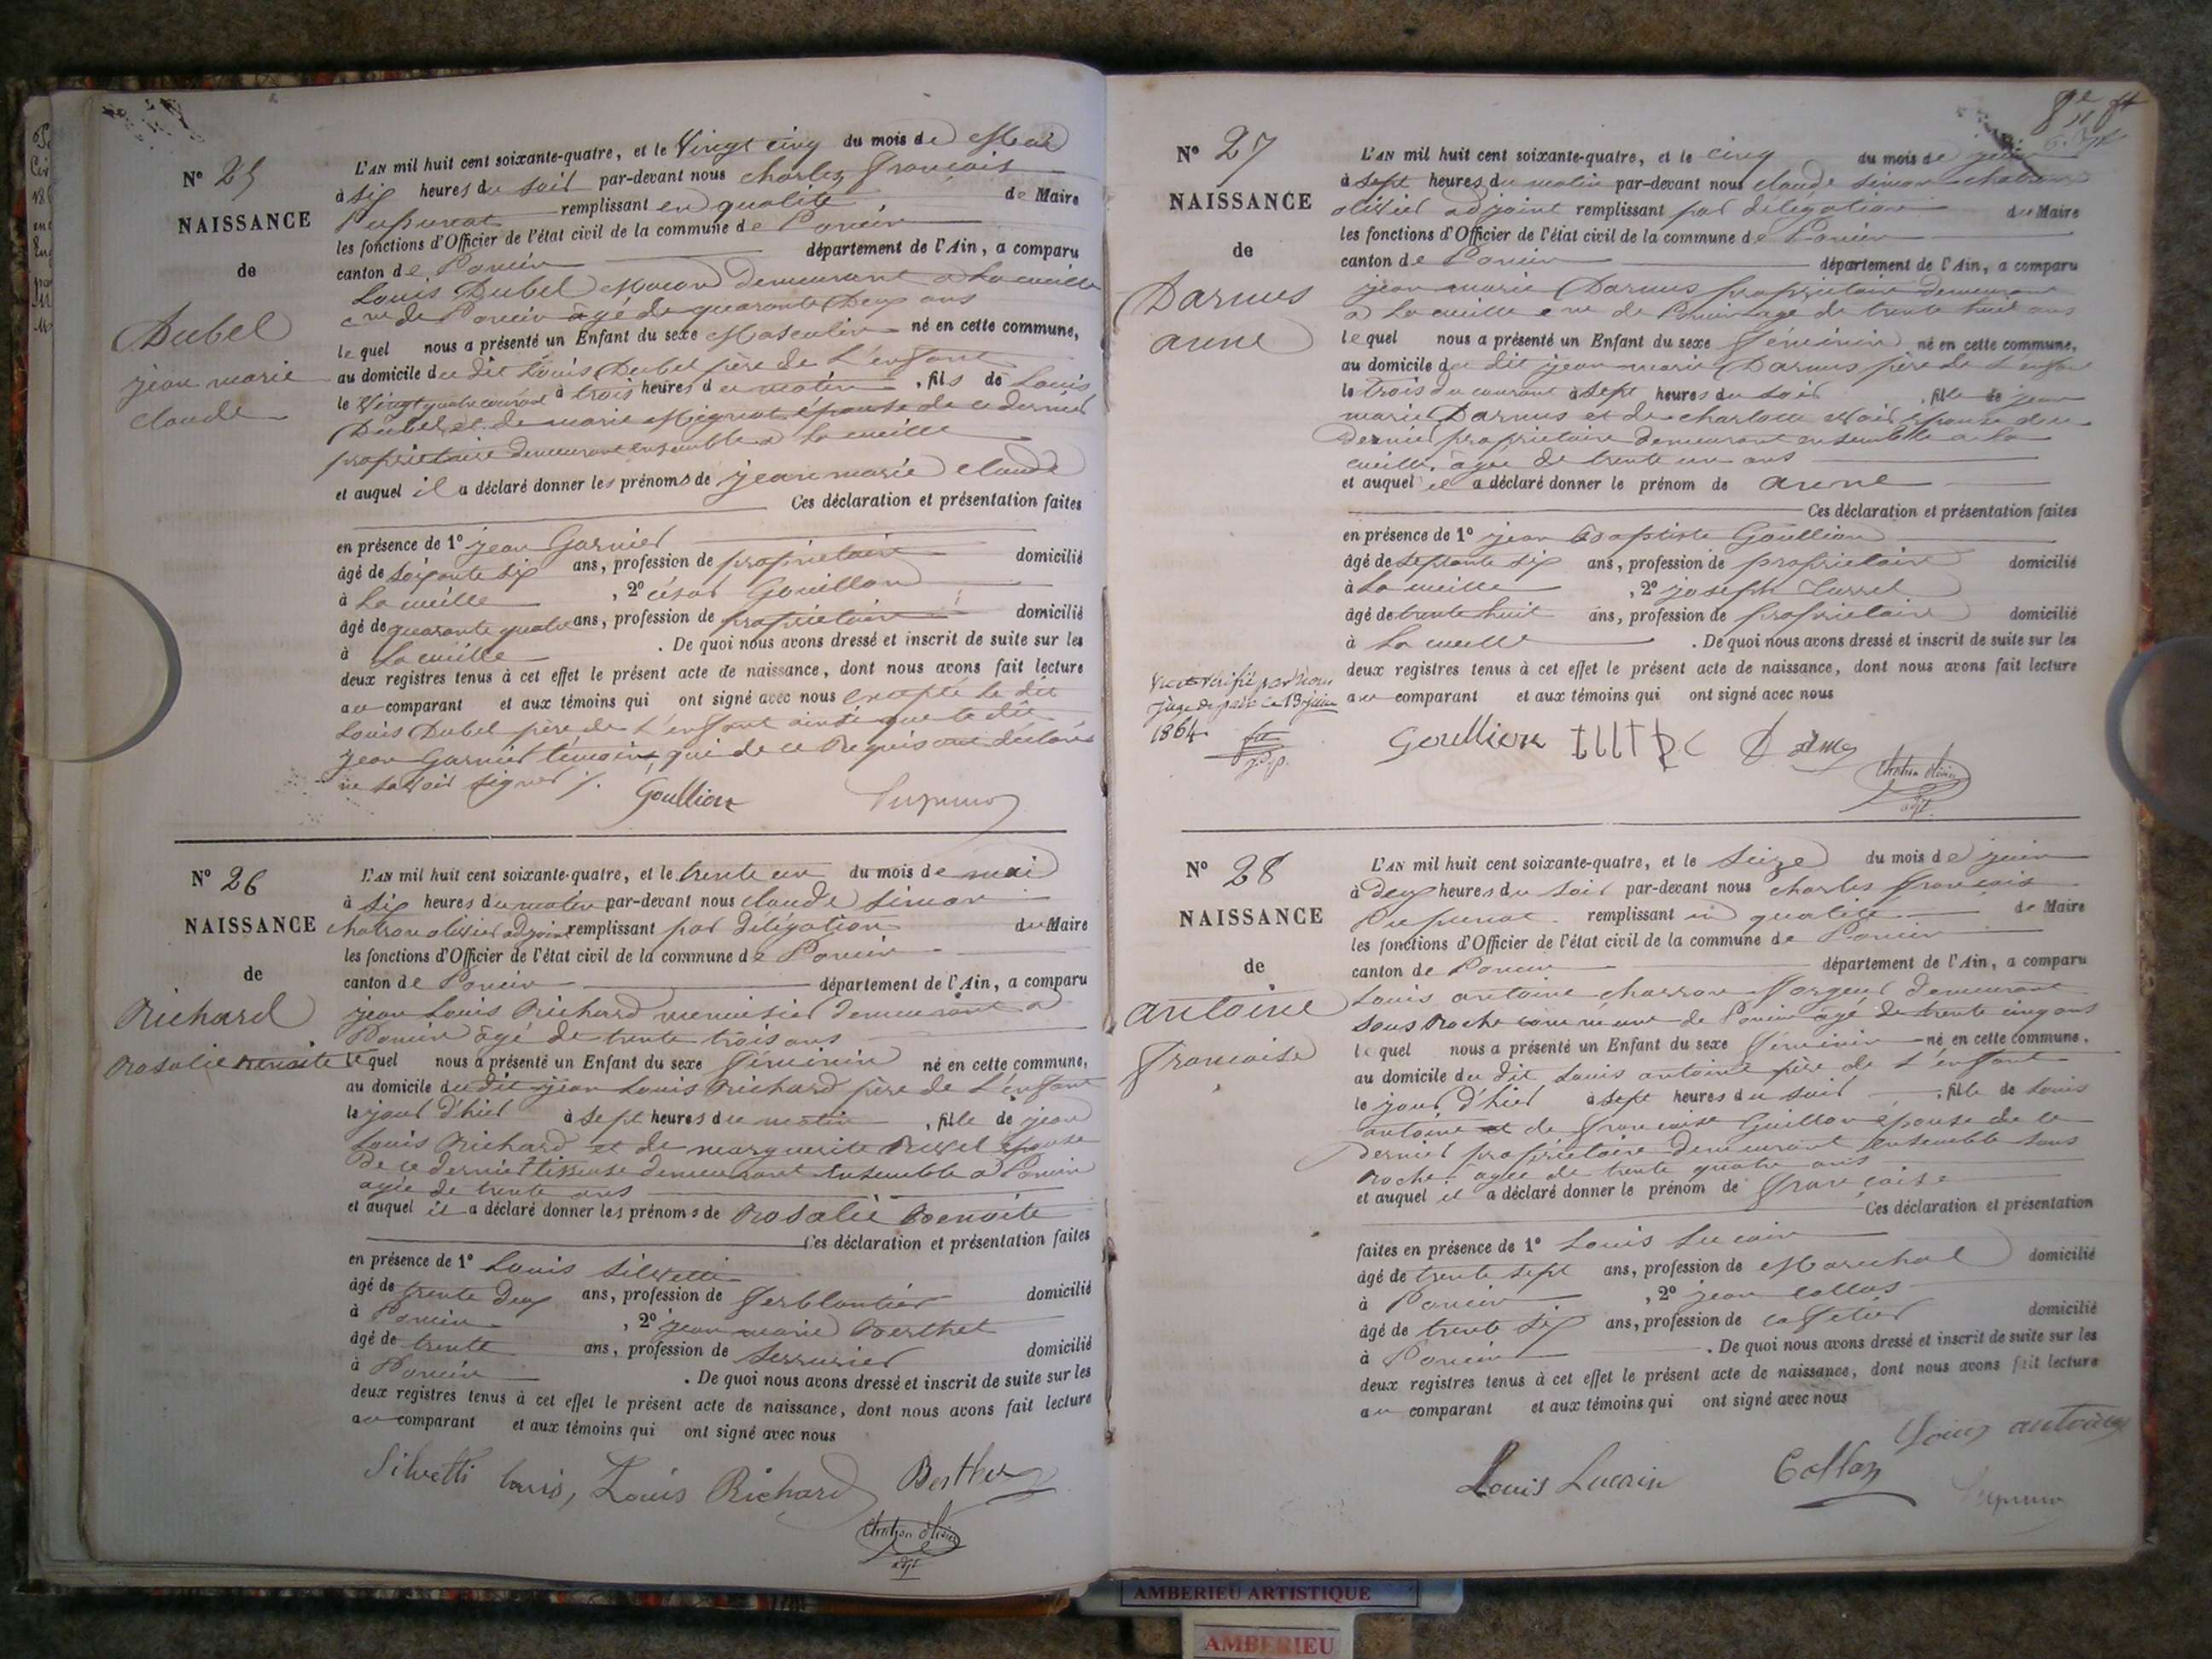 N° 25
NAISSANCE
de
Dubel
jean marie
claude
L'AN mil huit cent soixante-quatre, et le Vingt cinq du mois de Mai
à six heures du soir par-devant nous charles françois
Pupunat remplissant en qualité de Maire
les fonctions d'Officier de l'état civil de la commune de Poncin
canton de Poncin département de l'Ain, a comparu
Louis Dubel Macon demeurant a La cueille
cne de Poncin âgé de quarante Deux ans
lequel nous a présenté un Enfant du sexe Masculin né en cette commune,
au domicile du dit Louis Dubel père de L'enfant
le Vingt quatre courant à trois heures du matin, fils de Louis
Dubel et de marie Mignat épouse de ce dernier
propriétaire demeurant ensemble a La cueille
et auquel il a déclaré donner les prénoms de jean marie claude
Ces déclaration et présentation faites
en présence de 1° jean Garnier
âgé de soixante six ans, profession de propriétaire domicilié
à La cueille, 2° césar Gouillon
âgé de quarante quatre ans, profession de propriétaire domicilié
à La cueille. De quoi nous avons dressé et inscrit de suite sur les
deux registres tenus à cet effet le présent acte de naissance, dont nous avons fait lecture
au comparant et aux témoins qui ont signé avec nous excepté Le dit
Louis Dubel père de L'enfant ainsi que le dit
jean Garnier témoins, qui de ce Requis ont déclaré
ne savoir signer /.
Goullion
N° 26
NAISSANCE
de
Richard
Rosalie Benoite
L'AN mil huit cent soixante-quatre, et le trente un du mois de mai
à six heures du matin par-devant nous claude simon
chatron olivier adjoint remplissant par délégation du Maire
les fonctions d'Officier de l'état civil de la commune de Poncin
canton de Poncin département de l'Ain, a comparu
jean Louis Richard menuisier demeurant a
Poncin âgé de trente trois ans
lequel nous a présenté un Enfant du sexe féminin né en cette commune,
au domicile du dit jean Louis Richard père de L'enfant
le jour d'hier à sept heures du matin, fille de jean
Louis Richard et de marguerite épouse
De ce dernier tisseuse demeurant ensemble a Poncin
agée de trente ans
et auquel il a déclaré donner les prénoms de Rosalie Benoite
Ces déclaration et présentation faites
en présence de 1° Louis Silvetti
âgé de trente deux ans, profession de ferblantier domicilié
à Poncin, 2° jean marie Berthet
âgé de trente ans, profession de serrurier domicilié
à Poncin. De quoi nous avons dressé et inscrit de suite sur les
deux registres tenus à cet effet le présent acte de naissance, dont nous avons fait lecture
au comparant et aux témoins qui ont signé avec nous
Silvetti Louis, Louis Richard Berthet
Chatron Olivier
adjt
N° 27
NAISSANCE
de
Darmus
anne
L'AN mil huit cent soixante-quatre, et le cinq du mois de juin
à sept heures du matin par-devant nous claude simon chatron
olivier adjoint remplissant par délégation du Maire
les fonctions d'Officier de l'état civil de la commune de Poncin
canton de Poncin département de l'Ain, a comparu
jean marie Darmus propriétaire demeurant
a La cueille cne de Poncin age de trente huit ans
lequel nous a présenté un Enfant du sexe féminin né en cette commune,
au domicile du dit jean marie Darmus père de L'enfant
le trois du courant à sept heures du soir, fille de jean
marie Darmus et de charlotte épouse de ce
dernier propriétaire demeurant ensemble a La
cueille, agée de trente un ans
et auquel il a déclaré donner le prénom de anne
Ces déclaration et présentation faites
en présence de 1° jean Baptiste Goullion
âgé de septante six ans, profession de propriétaire domicilié
à La cueille, 2° joseph
âgé de trente huit ans, profession de propriétaire domicilié
à La cueille. De quoi nous avons dressé et inscrit de suite sur les
deux registres tenus à cet effet le présent acte de naissance, dont nous avons fait lecture
au comparant et aux témoins qui ont signé avec nous
Vu et vérifié par Nous
Juge de paix Ce 13 juin
1864
Goullion
Chatron Olivier
adjt
N° 28
NAISSANCE
de
antoine
françoise
L'AN mil huit cent soixante-quatre, et le seize du mois de juin
à Deux heures du soir par-devant nous charles françois
Pupunat remplissant en qualité de Maire
les fonctions d'Officier de l'état civil de la commune de Poncin
canton de Poncin département de l'Ain, a comparu
Louis antoine charron forgeur demeurant
sous Roche commune de Poncin agé de trente cinq ans
lequel nous a présenté un Enfant du sexe féminin né en cette commune,
au domicile du dit Louis antoine père de L'enfant
le jour d'hier à sept heures du soir, fille de Louis
antoine et de françoise Guillon épouse de ce
dernier propriétaire demeurant ensemble sous
Roche agée de trente quatre ans
et auquel il a déclaré donner le prénom de françoise
Ces déclaration et présentation
faites en présence de 1° Louis Lucain
âgé de trente sept ans, profession de Marechal domicilié
à Poncin, 2° jean collas
âgé de trente six ans, profession de cafetier domicilié
à Poncin. De quoi nous avons dressé et inscrit de suite sur les
deux registres tenus à cet effet le présent acte de naissance, dont nous avons fait lecture
au comparant et aux témoins qui ont signé avec nous
Louis antoine
Louis Lucain Collas
AMBERIEU ARTISTIQUE
AMBERIEU